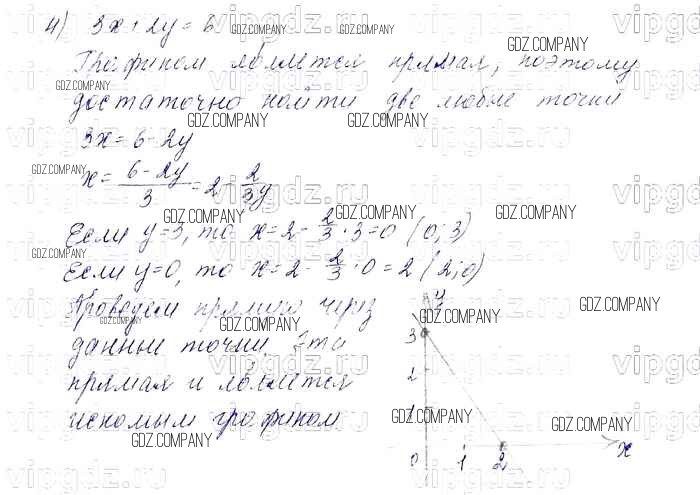 4) 3x + 2y = 6
Графиком является прямая, поэтому
достаточно найти две любые точки
3x = 6 - 2y
x = (6 - 2y)/3 = 2 - 2/3 y
Если y=3, то x = 2 - 2/3 · 3 = 0 (0; 3)
Если y=0, то x = 2 - 2/3 · 0 = 2 (2; 0)
Проведем прямую через
данные точки. Эта
прямая и является
искомым графиком
y
3
2
1
0 1 2 x
GDZ.COMPANY
vipgdz.ru